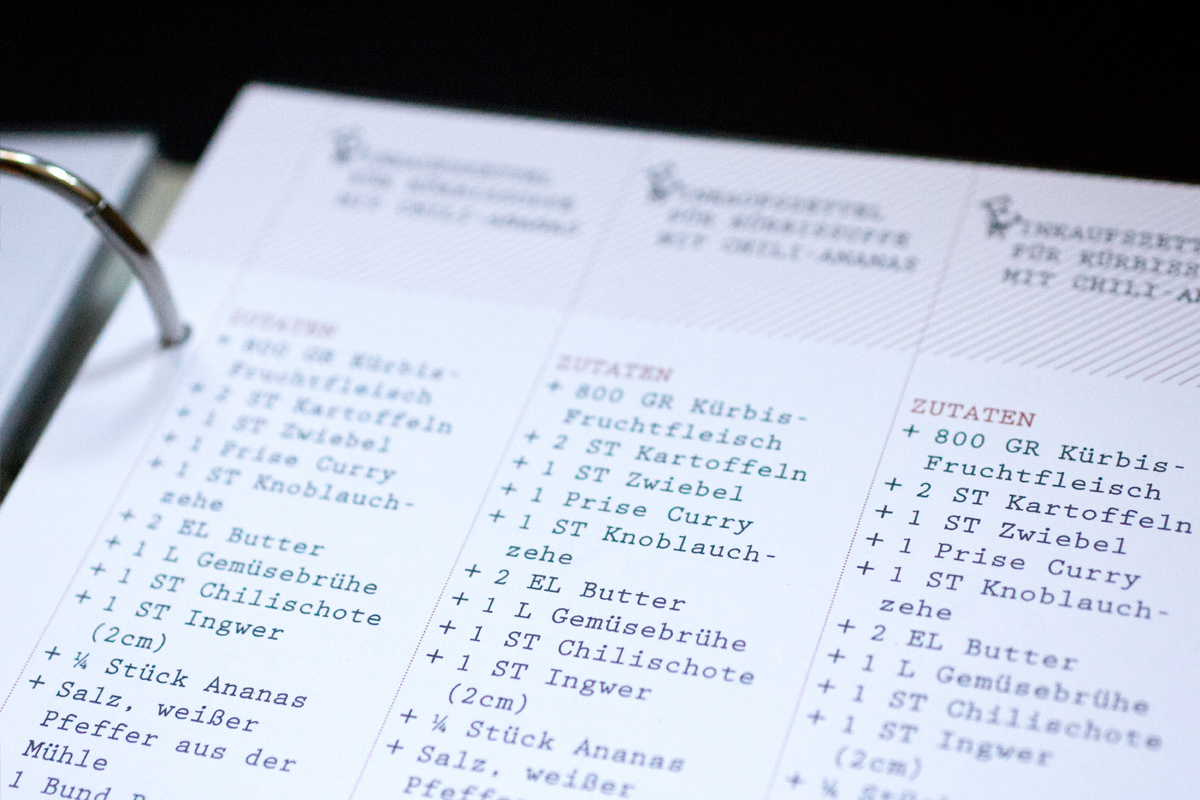 EINKAUFSZETTEL
FÜR KÜRBISSUPPE
MIT CHILI-ANANAS
ZUTATEN
+ 800 GR Kürbis-
Fruchtfleisch
+ 2 ST Kartoffeln
+ 1 ST Zwiebel
+ 1 Prise Curry
+ 1 ST Knoblauch-
zehe
+ 2 EL Butter
+ 1 L Gemüsebrühe
+ 1 ST Chilischote
+ 1 ST Ingwer
(2cm)
+ ¼ Stück Ananas
+ Salz, weißer
Pfeffer aus der
Mühle
1 Bund
EINKAUFSZETTEL
FÜR KÜRBISSUPPE
MIT CHILI-ANANAS
ZUTATEN
+ 800 GR Kürbis-
Fruchtfleisch
+ 2 ST Kartoffeln
+ 1 ST Zwiebel
+ 1 Prise Curry
+ 1 ST Knoblauch-
zehe
+ 2 EL Butter
+ 1 L Gemüsebrühe
+ 1 ST Chilischote
+ 1 ST Ingwer
(2cm)
+ ¼ Stück Ananas
+ Salz, weißer
Pfeffer
EINKAUFSZETT
FÜR KÜRBISS
MIT CHILI-A
ZUTATEN
+ 800 GR Kürbis-
Fruchtfleisch
+ 2 ST Kartoffeln
+ 1 ST Zwiebel
+ 1 Prise Curry
+ 1 ST Knoblauch-
zehe
+ 2 EL Butter
+ 1 L Gemüsebrühe
+ 1 ST Chilischote
+ 1 ST Ingwer
(2cm)
+ ¼ Stück